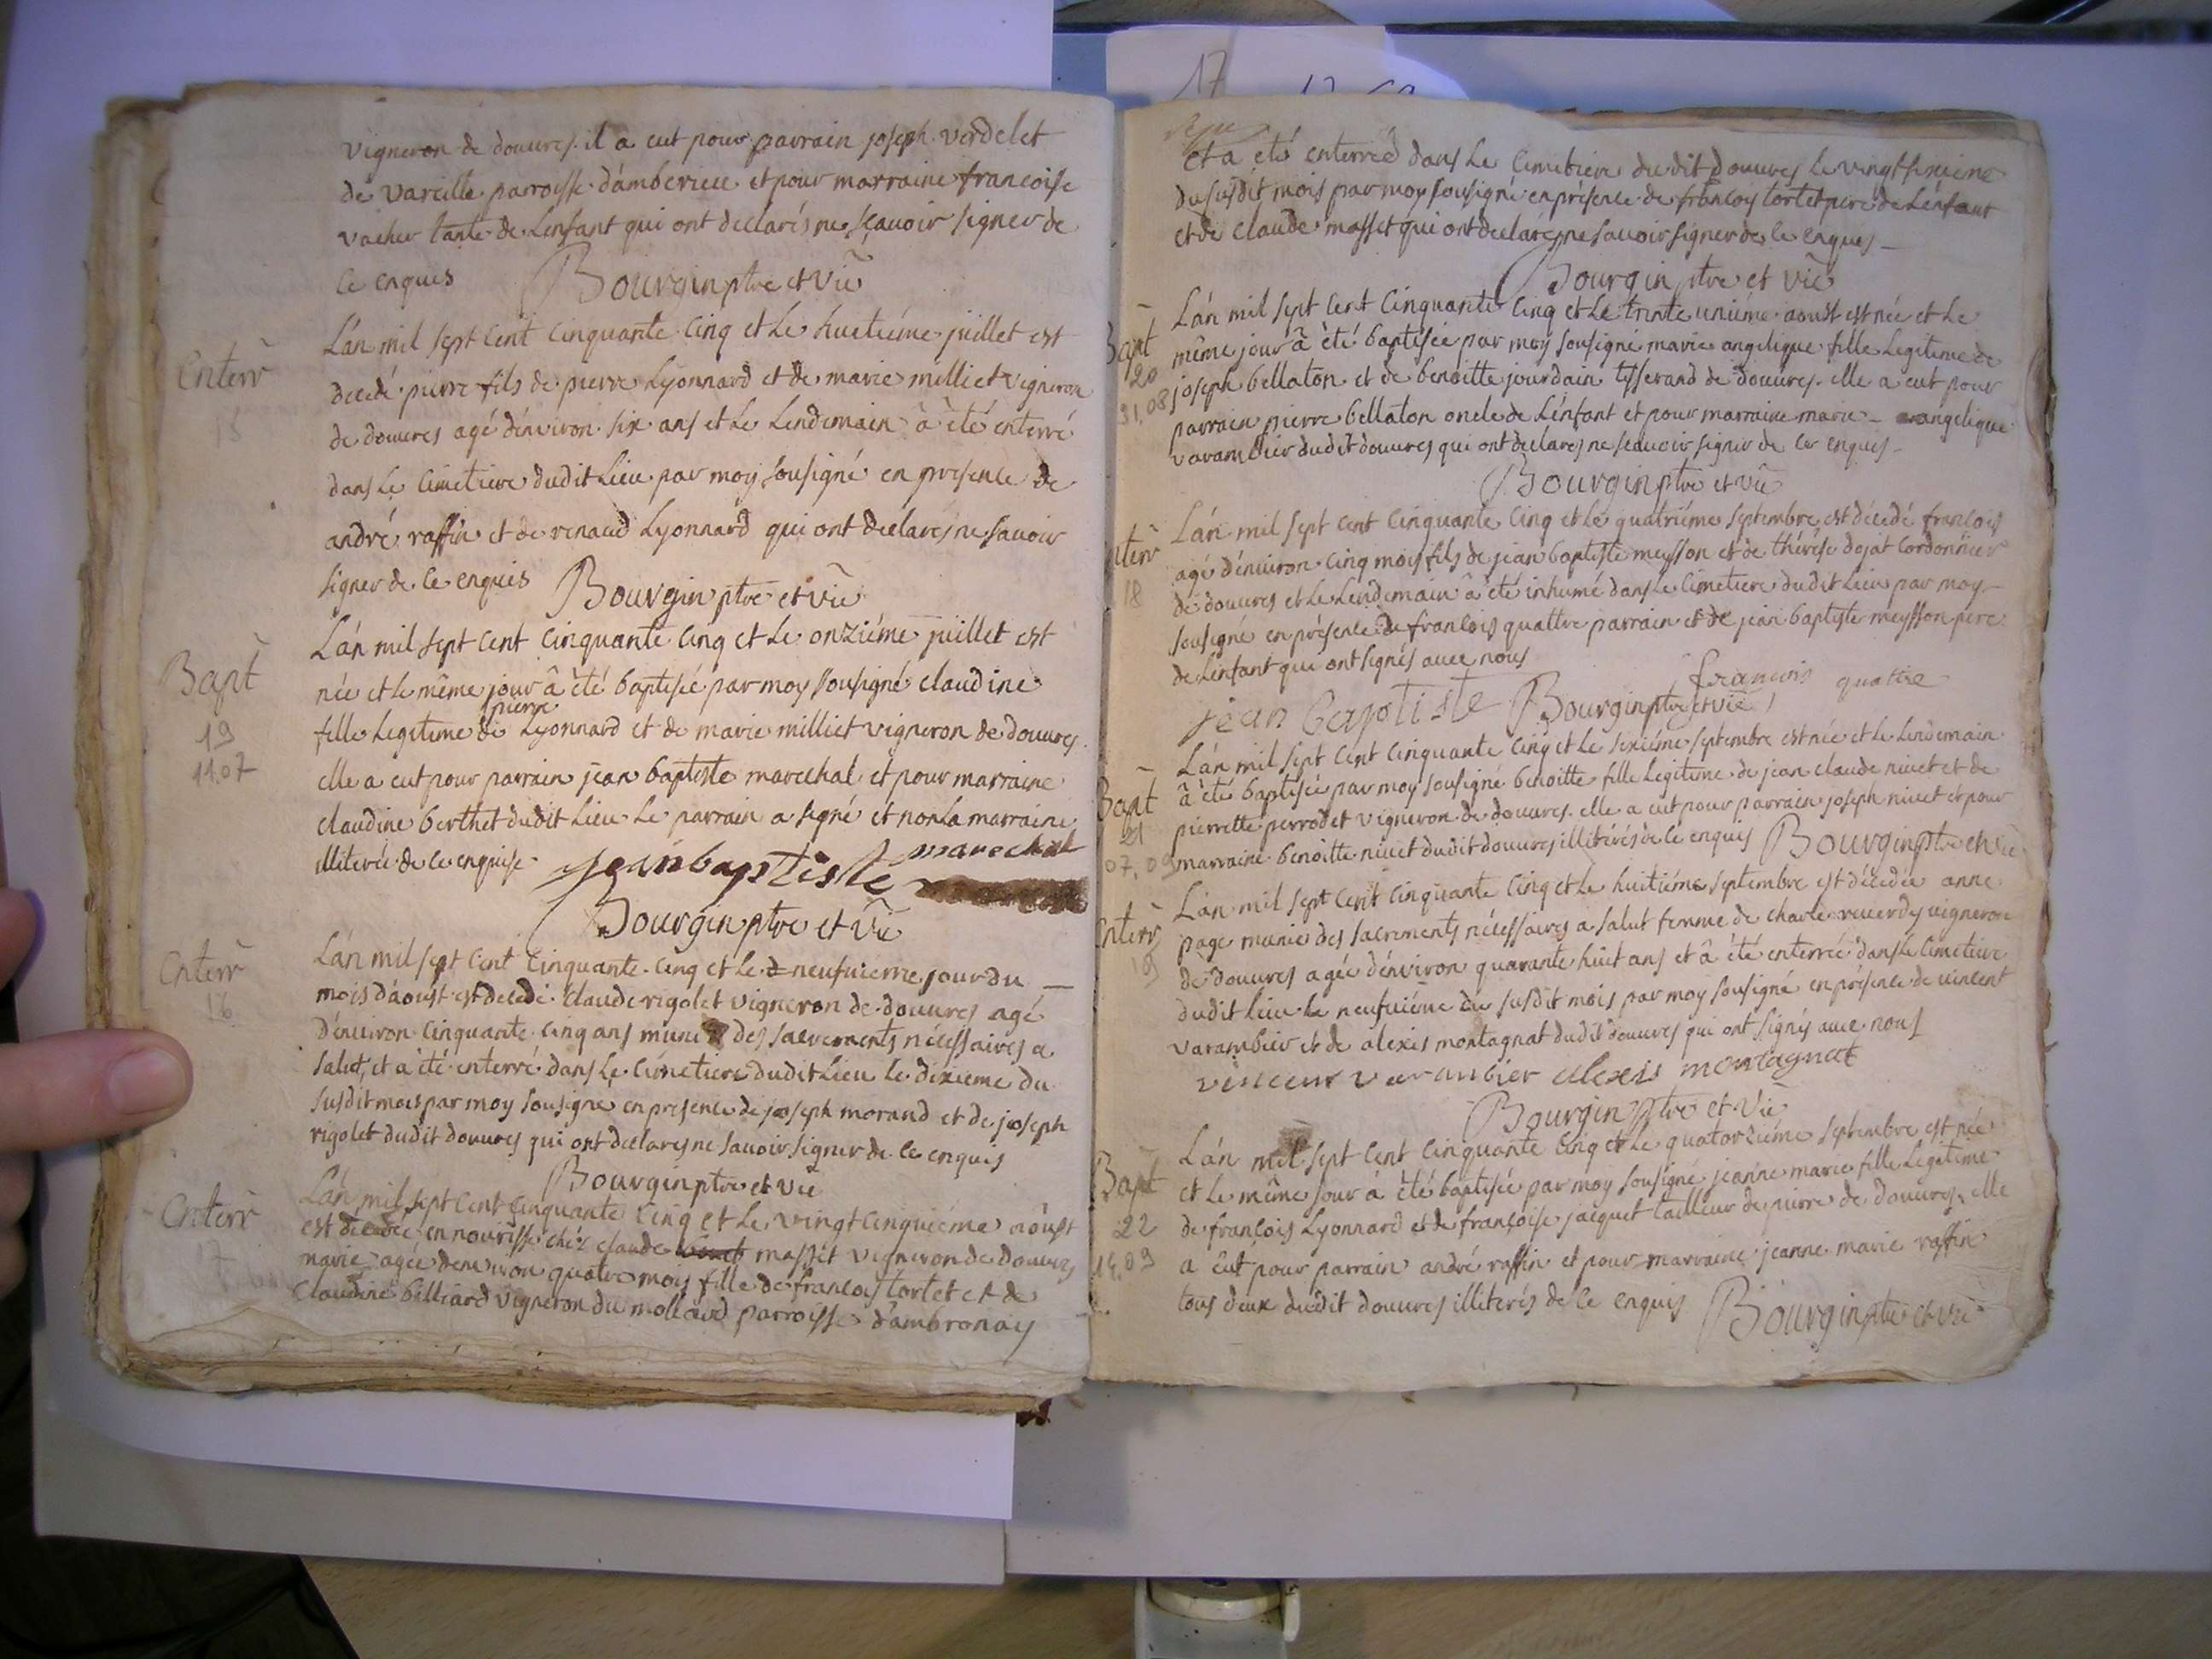 vigneron de douvres. il a eut pour parrain joseph verdelet
de vareille parroisse d'amberieu et pour marraine francoise
vacher tante de L'enfant qui ont declarés ne sçavoir signer de
ce enquis Bourgin ptre et vic
Enterr
15
L'an mil sept cent cinquante cinq et le huitiéme juillet est
decedé pierre fils de pierre Lyonnard et de marie milliet vigneron
de douvres agé d'environ six ans et le Lendemain à èté enterré
dans le cimetiere dudit Lieu par moy sousigné en presence de
andré raffin et de renaud Lyonnard qui ont declarés ne savoir
signer de ce enquis Bourgin ptre et vic
Bapt
19
11.07
L'an mil sept cent cinquante cinq et le onziéme juillet est
née et le même jour â èté baptisée par moy sousigné claudine
fille Legitime de pierre Lyonnard et de marie milliet vigneron de douvres
elle a eut pour parrain jean baptiste marechal et pour marraine
claudine berthet dudit Lieu le parrain a signé et non la marraine
illiterée de ce enquise jean baptiste marechal
Bourgin ptre et vic
Enterr
16
L'an mil sept cent cinquante cinq et le neufvieme jour du
mois d'aoust est decedé claude rigolet vigneron de douvres agé
d'environ cinquante cinq ans muni des sacrements nécessaires a
salut, et a èté enterré dans le cimetiere dudit Lieu le dixieme du
susdit mois par moy sousigné en presence de joseph morand et de joseph
rigolet dudit douvres qui ont declarés ne savoir signer de ce enquis
Bourgin ptre et vic
Enterr
17
L'an mil sept cent cinquante cinq et le vingt cinquiéme aoust
est decedée en nourisse chéz claude masset vigneron de douvres
marie agée d'environ quatre mois fille de francois tortet et de
claudine billiard vigneron du mollard parroisse d'ambronay
et a été enterrée dans le cimetiere du dit douvres le vingt sixieme
du susdit mois par moy sousigné en présence de francois tortet pere de L'enfant
et de claude masset qui ont declarés ne savoir signer de ce enquis
Bourgin ptre et vic
Bapt
20
31.08
L'an mil sept cent cinquante cinq et le trente uniéme aoust est née et le
même jour â èté baptisée par moy sousigné marie angelique fille Legitime de
joseph bellaton et de benoitte jourdain tisserand de douvres. elle a eut pour
parrain pierre bellaton oncle de L'enfant et pour marraine marie angelique
varambier dudit douvres qui ont declarés ne sçavoir signer de ce enquis
Bourgin ptre et vic
Enterr
18
L'an mil sept cent cinquante cinq et le quatriéme septembre est décedé francois
agé d'environ cinq mois fils de jean baptiste meysson et de thérése dojat cordonnier
de douvres et le Lendemain â èté inhumé dans le cimetiere dudit Lieu par moy
sousigné en présence de francois quattre parrain et de jean baptiste meysson pere
de L'enfant qui ont signés avec nous
francois quatre
jean baptiste Bourgin ptre et vic
Bapt
21
07.09
L'an mil sept cent cinquante cinq et le sixiéme septembre est née et le Lendemain
â èté baptisée par moy sousigné benoitte fille Legitime de jean claude nivet et de
pierrette perrodet vigneron de douvres. elle a eut pour parrain joseph nivet et pour
marraine benoitte nivet dudit douvres illiterés de ce enquis Bourgin ptre et vic
Enterr
19
L'an mil sept cent cinquante cinq et le huitiéme septembre est décedée anne
page munie des sacrements nécessaires a salut femme de charle reverdy vigneron
de douvres agée d'environ quarante huit ans et â èté enterrée dans le cimetiere
dudit Lieu le neufviéme du susdit mois par moy sousigné en présence de vincent
varambier et de alexis montagnat dudit douvres qui ont signés avec nous
vincent varambier alexis montagnat
Bourgin ptre et vic
Bapt
22
14.09
L'an mil sept cent cinquante cinq et le quatorziéme septembre est née
et le même jour à èté baptisée par moy sousigné jeanne marie fille Legitime
de françois Lyonnard et de françoise jacquet tailleur de pierre de douvres. elle
a eut pour parrain andré raffin et pour marraine jeanne marie raffin
tous deux dudit douvres illiterés de ce enquis Bourgin ptre et vic